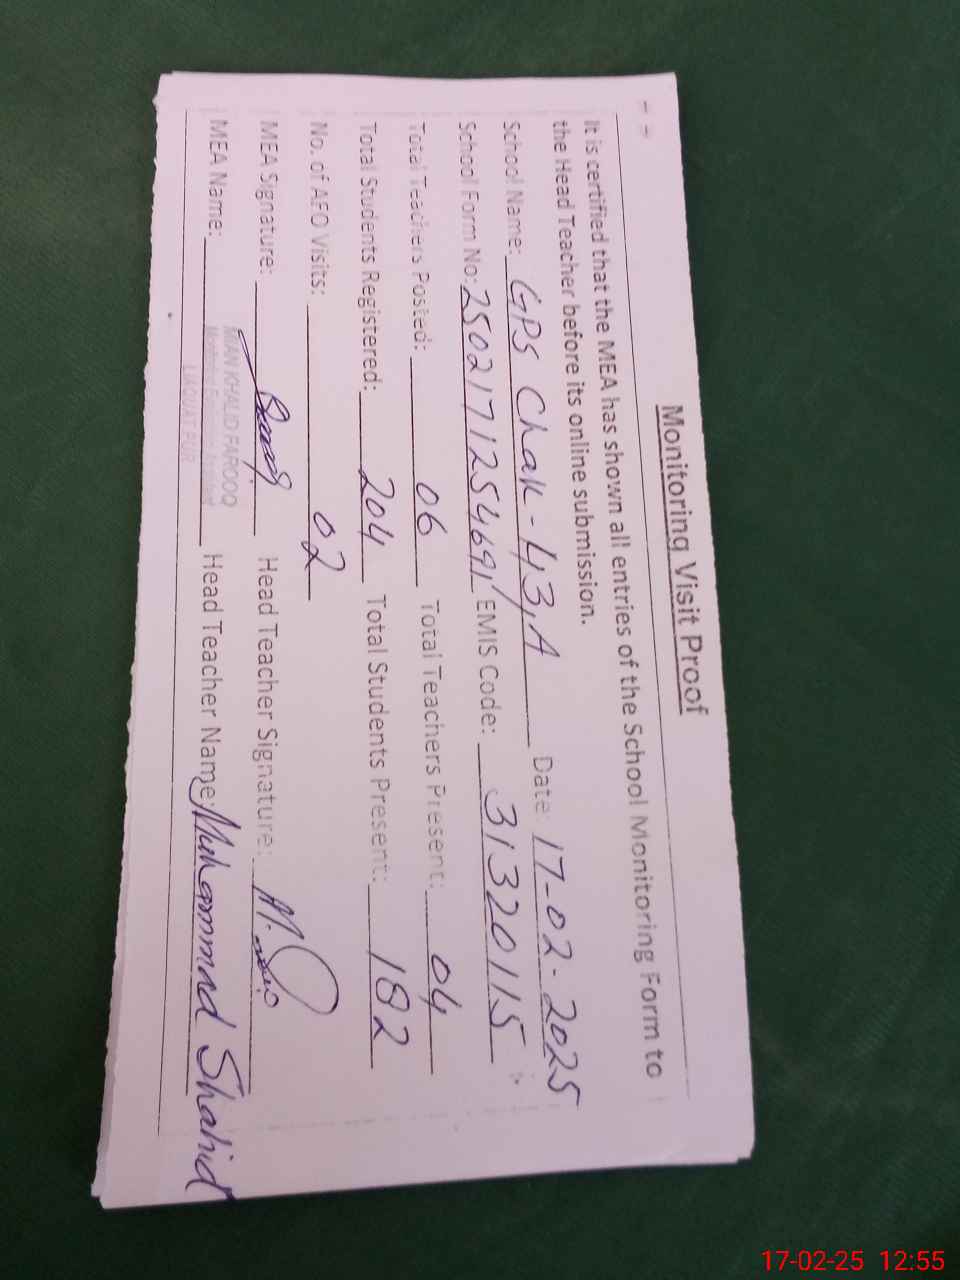 Monitoring Visit Proof
It is certified that the MEA has shown all entries of the School Monitoring Form to
the Head Teacher before its online submission.
School Name: GPS Chak-43/A Date: 17-02-2025
School Form No: 2502171254691 EMIS Code: 31320115
Total Teachers Posted: 06 Total Teachers Present: 04
Total Students Registered: 204 Total Students Present: 182
No. of AEO Visits: 02
MEA Signature: Head Teacher Signature: M.
MEA Name: MIAN KHALID FAROOQ Head Teacher Name: Muhammad Shahid
Monitoring Evaluation Assistant
LIAQUAT PUR
17-02-25 12:55